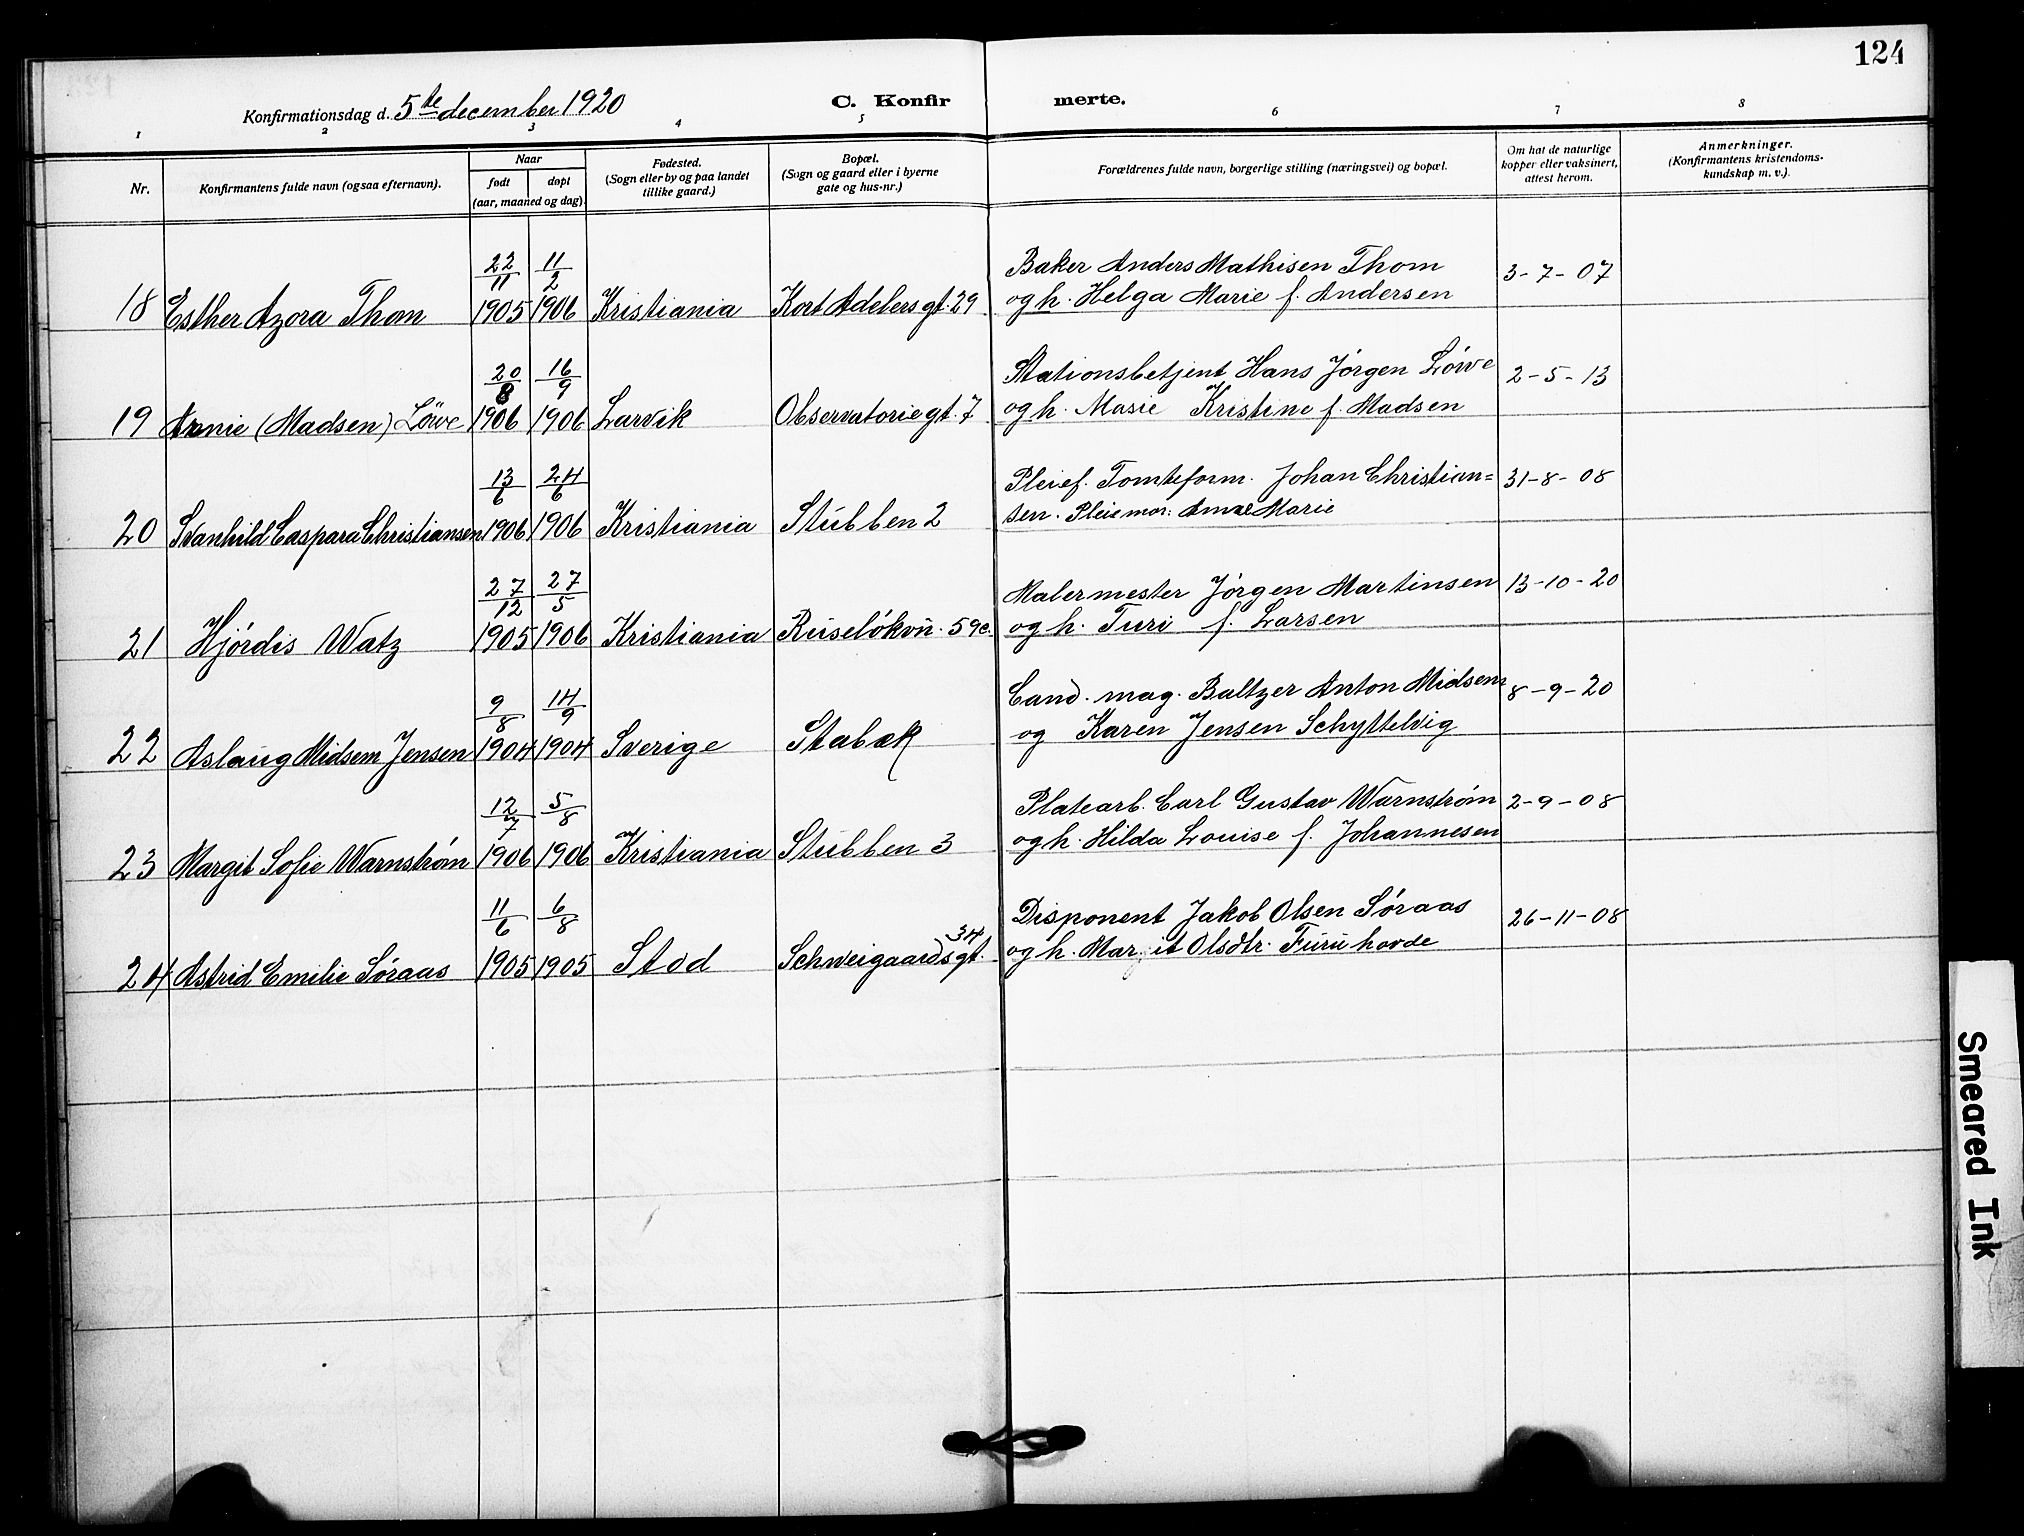 124
Konfirmationsdag d. 5te december 1920
C. Konfir merte.
1 2 3 4 5 6 7 8
Nr.
Konfirmantens fulde navn (ogsaa efternavn).
Naar
født døpt
(aar, maaned og dag).
Fødested.
(Sogn eller by og paa landet
tillike gaard.)
Bopæl.
(Sogn og gaard eller i byerne
gate og hus-nr.)
Forældrenes fulde navn, borgerlige stilling (næringsvei) og bopæl.
Om hat de naturlige
kopper eller vaksinert,
attest herom.
Anmerkninger.
(Konfirmantens kristendoms-
kundskap m. v.).
22/11 11/2 Baker Anders Mathisen Thom 3-7-07
18 Esther Azora Thom 1905 1906 Kristiania Kort Adelers gt. 29 og h. Helga Marie f. Andersen
20/8 16/9 Stationsbetjent Hans Jörgen Löwe 2-5-13
19 Annie (Madsen) Löwe 1906 1906 Larvik Observatorie gt. 7 og h. Masie Kristine f. Madsen
13/6 24/6 Pleief. Tomteform. Johan Christian= 31-8-08
20 Svanhild Caspara Christiansen 1906 1906 Kristiania Stubben 2 sen. Pleiemor: Anna Marie
27/12 27/5 Malermester Jörgen Martinsen 13-10-20
21 Hjördis Watz 1905 1906 Kristiania Ruselökvn. 59c. og h. Turi f. Larsen
9/8 14/9 Cand. mag. Baltzer Anton Midsem 8-9-20
22 Aslaug Midsem Jensen 1904 1904 Sverige Stabæk og Karen Jensen Schyttelvig
12/7 5/8 Platearb. Carl Gustav Warnström 2-9-08
23 Margit Sofie Warnström 1906 1906 Kristiania Stubben 3 og h. Hilda Louise f. Johannesen
11/6 6/8 Disponent Jakob Olsen Söraas 26-11-08
24 Astrid Emilie Söraas 1905 1905 Stod Schweigaards gt. 34 og h. Margit Olsdtr. Furuhovde
Smeared Ink